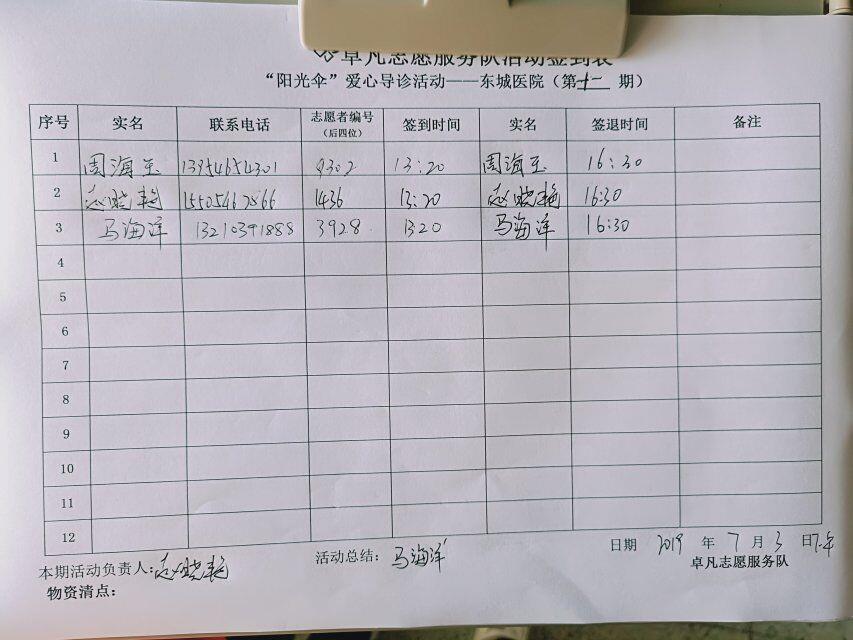 卓凡志愿服务队活动签到表
“阳光伞”爱心导诊活动——东城医院（第十二期）
序号 实名 联系电话 志愿者编号（后四位） 签到时间 实名 签退时间 备注
1 周海玉 13954654301 9302 13:20 周海玉 16:30
2 赵晓艳 1436 13:20 赵晓艳 16:30
3 马海洋 13210391888 3928 1320 马海洋 16:30
4
5
6
7
8
9
10
11
12
本期活动负责人：赵晓艳 活动总结：马海洋 日期 2019 年 7 月 3 日下午
物资清点： 卓凡志愿服务队